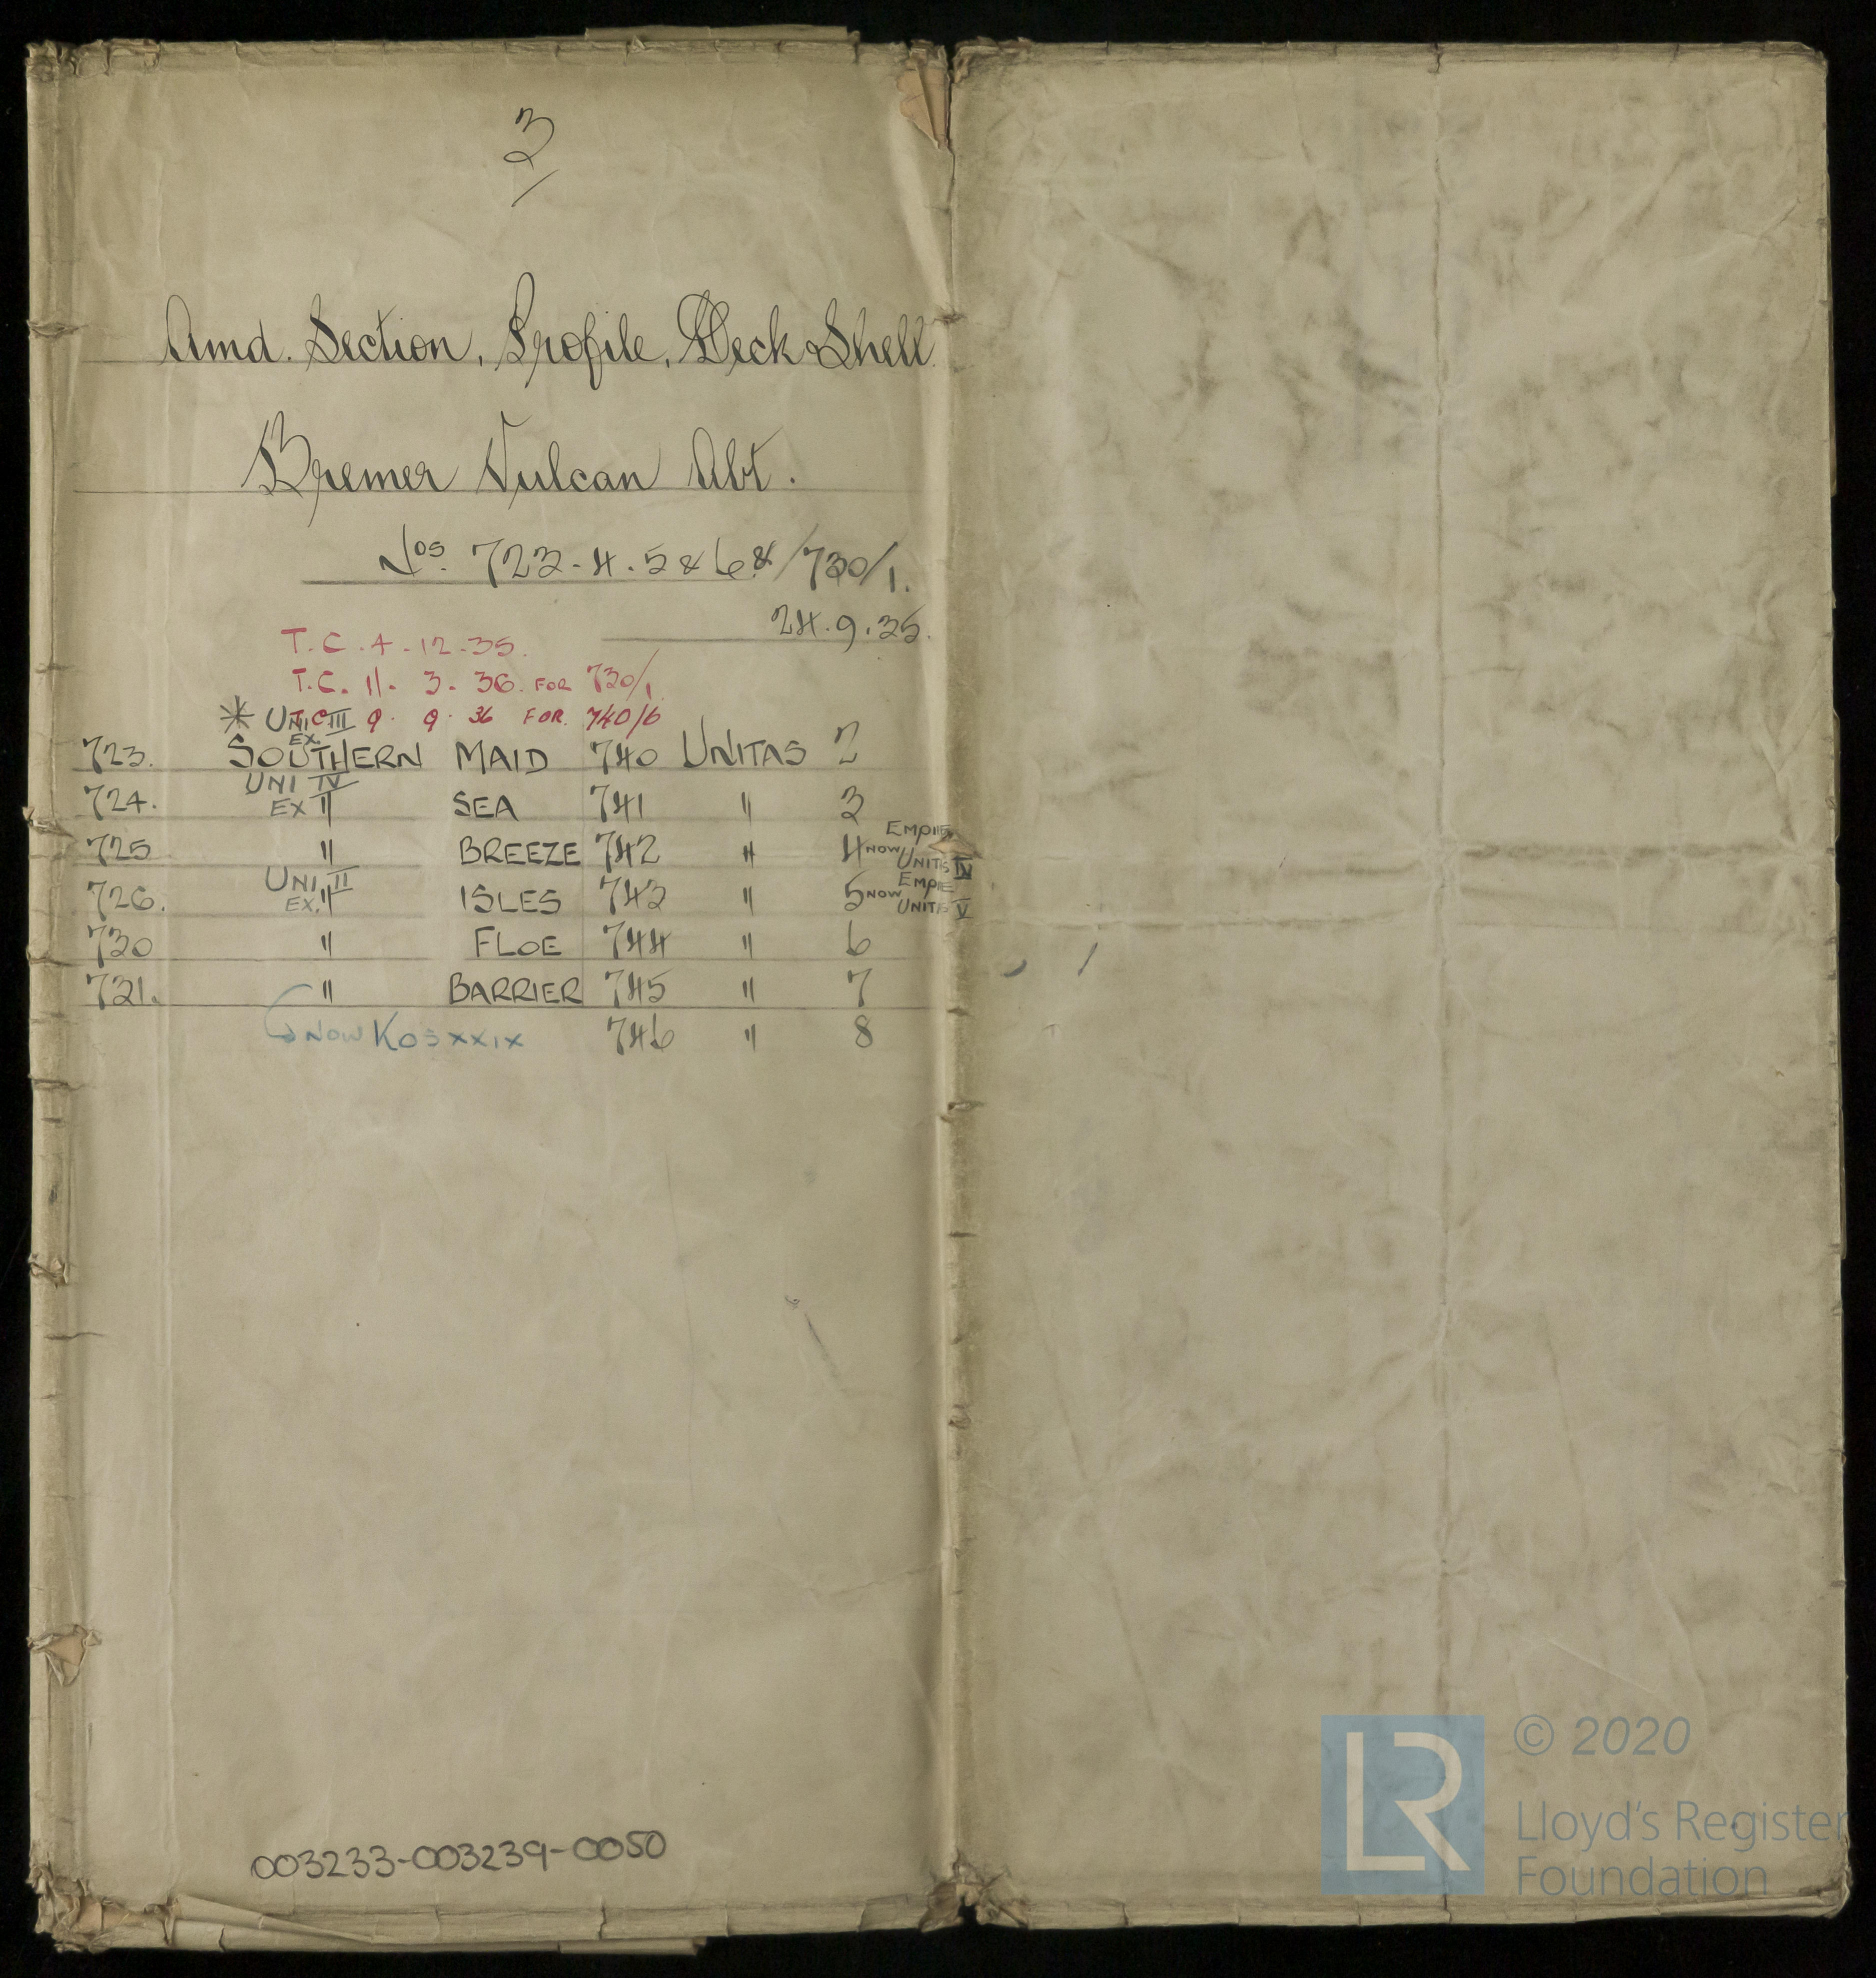 3
Amd. Section, Profile, Deck & Shell.
Bremer Vulcan Abt.
Nos. 723-4.5 & 6 & /730/1.
24.9.35.
T.C. 4-12-35.
T.C. 11-3-36. FOR 730/1
* UNI III T.C. 9. 9. 36 FOR. 740/6
EX.
723. SOUTHERN MAID 740 UNITAS 2
UNI IV
724. EX " SEA 741 " 3
EMPIRE
725 " BREEZE 742 " 4 NOW UNITAS IV
UNI II EMPIRE
726. EX. " ISLES 743 " 5 NOW UNITAS V
730 " FLOE 744 " 6
731. " BARRIER 745 " 7
NOW KOS XXIX 746 " 8
003233-003239-0050
LR
© 2020
Lloyd's Register
Foundation